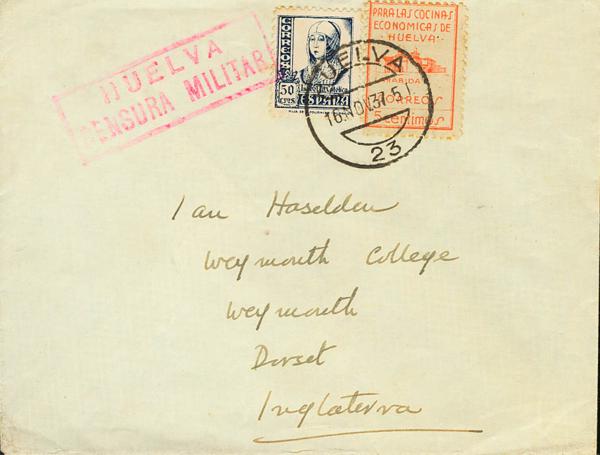 HUELVA
CENSURA MILITAR
CORREOS
50
CTS
ESPAÑA
PARA LAS COCINAS
ECONOMICAS DE
HUELVA
RABIDA
CORREOS
5 centimos
HUELVA
16 NOV 37 - 5 T
23
Ian Haselden
Weymouth College
Weymouth
Dorset
Inglaterra